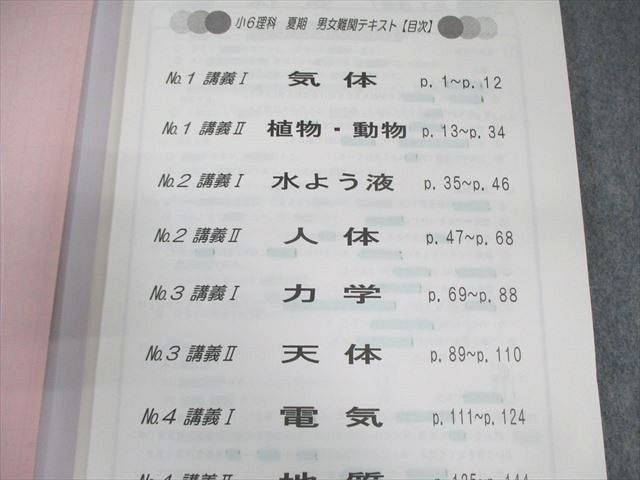 小6理科 夏期 男女難関テキスト【目次】
No.1 講義Ⅰ 気体 p.1~p.12
No.1 講義Ⅱ 植物・動物 p.13~p.34
No.2 講義Ⅰ 水よう液 p.35~p.46
No.2 講義Ⅱ 人体 p.47~p.68
No.3 講義Ⅰ 力学 p.69~p.88
No.3 講義Ⅱ 天体 p.89~p.110
No.4 講義Ⅰ 電気 p.111~p.124
No.4 講義Ⅱ 地質 p.125~p.144